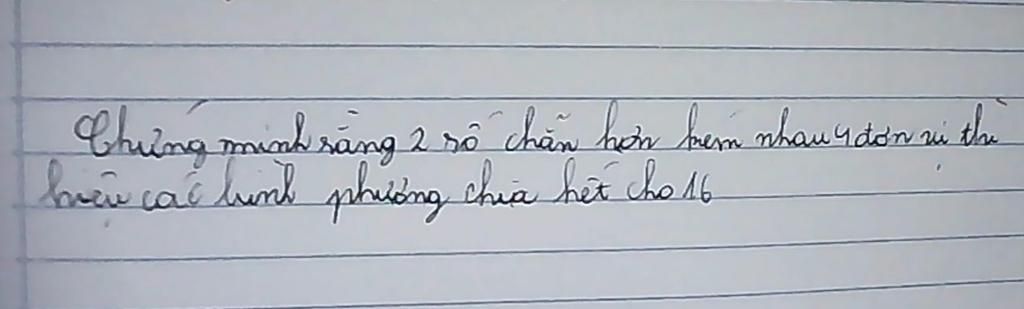 Chứng minh rằng 2 số chẵn hơn kém nhau 4 đơn vị thì
hiệu các bình phương chia hết cho 16